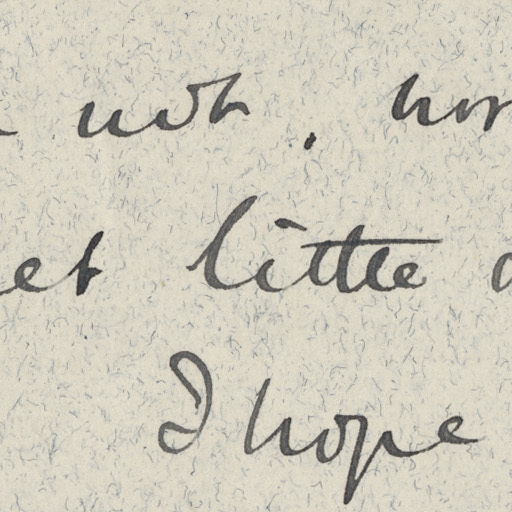 not. hor
et little
I hope